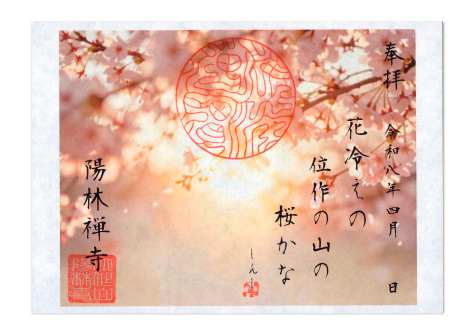 奉拝
令和八年四月　日
花冷えの
位作の山の
桜かな
しん
陽林禅寺